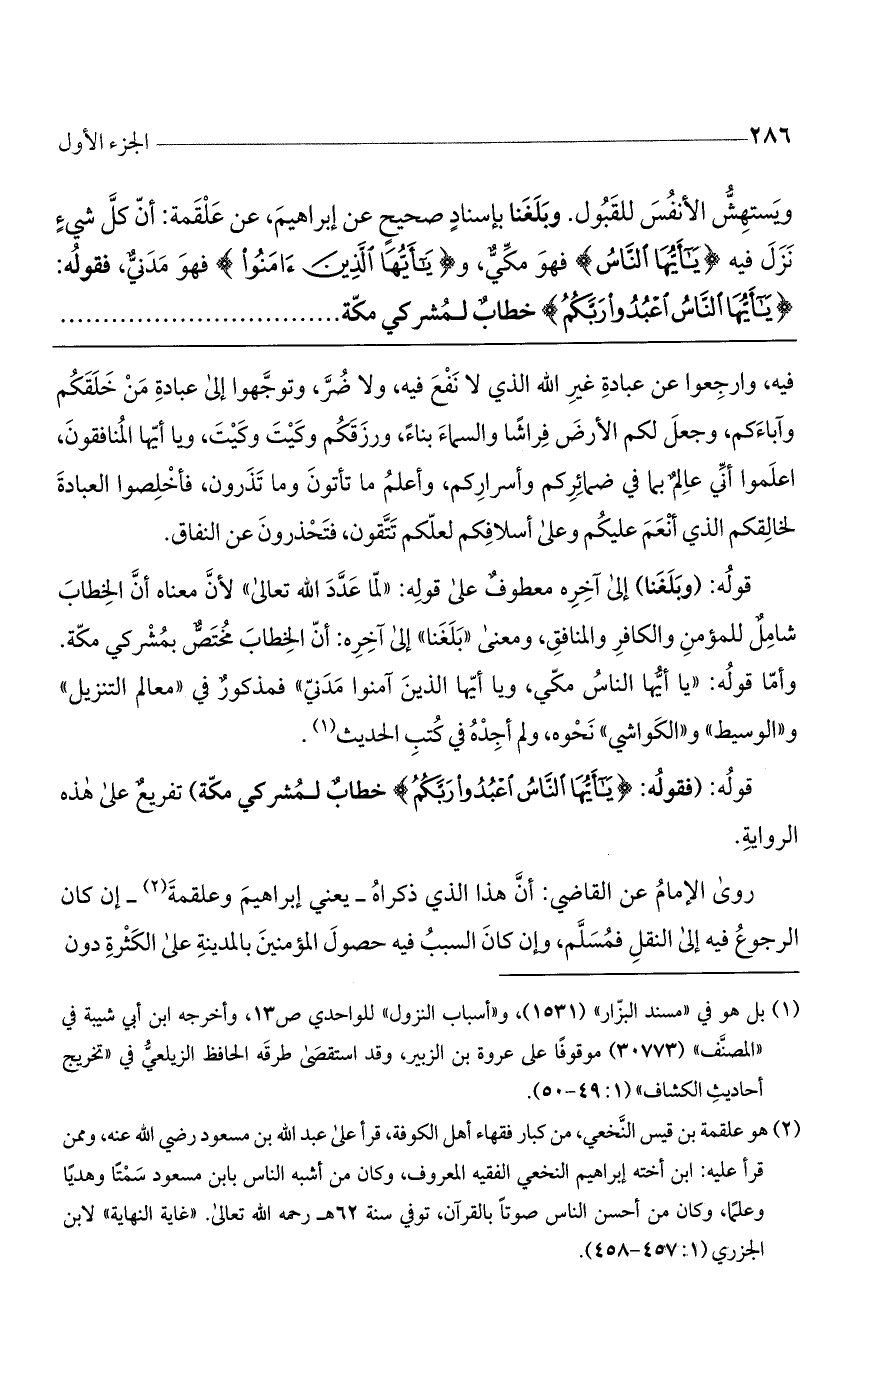 ٢٨٦ الجزء الأول
ويَستهِشُّ الأنفُسَ للقَبُول. وبَلَغَنا بإسنادٍ صحيحٍ عن إبراهيمَ، عن عَلْقَمة: أنّ كلَّ شيءٍ
نَزَلَ فيه ﴿يَٰٓأَيُّهَا ٱلنَّاسُ﴾ فهوَ مكيٌّ، و﴿يَٰٓأَيُّهَا ٱلَّذِينَ ءَامَنُوا۟﴾ فهوَ مَدَنيٌّ، فقولُه:
﴿يَٰٓأَيُّهَا ٱلنَّاسُ ٱعْبُدُوا۟ رَبَّكُمُ﴾ خطابٌ لـمُشركي مكّة................................
فيه، وارجِعوا عن عبادةِ غيرِ الله الذي لا نَفْعَ فيه، ولا ضُرَّ، وتوجَّهوا إلىٰ عبادةِ مَنْ خَلَقَكُم
وآباءَكم، وجعلَ لكم الأرضَ فِراشًا والسماءَ بناءً، ورزَقَكُم وكَيْتَ وكَيْتَ، ويا أيّها المُنافقونَ،
اعلَموا أنِّي عالِمٌ بما في ضمائِرِكم وأسرارِكم، وأعلمُ ما تأتونَ وما تَذَرون، فأخْلِصوا العبادةَ
لخالِقكم الذي أنْعَمَ عليكُم وعلىٰ أسلافِكم لعلّكم تَتَّقون، فتَحْذرونَ عن النفاق.
قولُه: (وبَلَغَنا) إلىٰ آخِرِه معطوفٌ علىٰ قولِه: «لمّا عَدَّدَ الله تعالىٰ» لأنَّ معناه أنَّ الخِطابَ
شامِلٌ للمؤمنِ والكافرِ والمنافقِ، ومعنىٰ «بَلَغَنا» إلىٰ آخِرِه: أنّ الخِطابَ مُختَصٌّ بمُشْركي مكّة.
وأمّا قولُه: «يا أيُّها الناسُ مكّي، ويا أيّها الذينَ آمنوا مَدَنيّ» فمذكورٌ في «معالم التنزيل»
و«الوسيط» و«الكَواشي» نَحْوه، ولم أجِدْهُ في كُتبِ الحديث(١).
قولُه: (فقولُه: ﴿يَٰٓأَيُّهَا ٱلنَّاسُ ٱعْبُدُوا۟ رَبَّكُمُ﴾ خطابٌ لـمُشركي مكّة) تفريعٌ علىٰ هٰذه
الروايةِ.
روىٰ الإمامُ عن القاضي: أنَّ هذا الذي ذكراهُ ـ يعني إبراهيمَ وعلقمةَ(٢) ـ إن كان
الرجوعُ فيه إلىٰ النقلِ فمُسَلَّم، وإن كانَ السببُ فيه حصولَ المؤمنينَ بالمدينةِ علىٰ الكَثْرةِ دون
(١) بل هو في «مسند البزّار» (١٥٣١)، و«أسباب النزول» للواحدي ص١٣، وأخرجه ابن أبي شيبة في
«المصنَّف» (٣٠٧٧٣) موقوفًا على عروة بن الزبير، وقد استقصَىٰ طرقَه الحافظ الزيلعيُّ في «تخريج
أحاديثِ الكشاف» (١: ٤٩-٥٠).
(٢) هو علقمة بن قيس النَّخعي، من كبار فقهاء أهل الكوفة، قرأ علىٰ عبد الله بن مسعود رضي الله عنه، وممن
قرأ عليه: ابن أخته إبراهيم النخعي الفقيه المعروف، وكان من أشبه الناس بابن مسعود سَمْتًا وهديًا
وعلمًا، وكان من أحسن الناس صوتاً بالقرآن، توفي سنة ٦٢هـ رحمه الله تعالىٰ. «غاية النهاية» لابن
الجزري (١: ٤٥٧-٤٥٨).